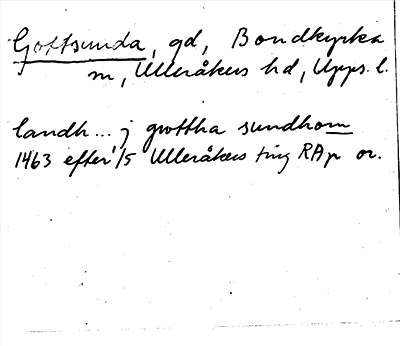 Gottsunda, gd, Bondkyrka
m, Ulleråkers hd, Upps. l.
landh... j grottha sundhom
1463 efter 1/5 Ulleråkers ting RAp or.